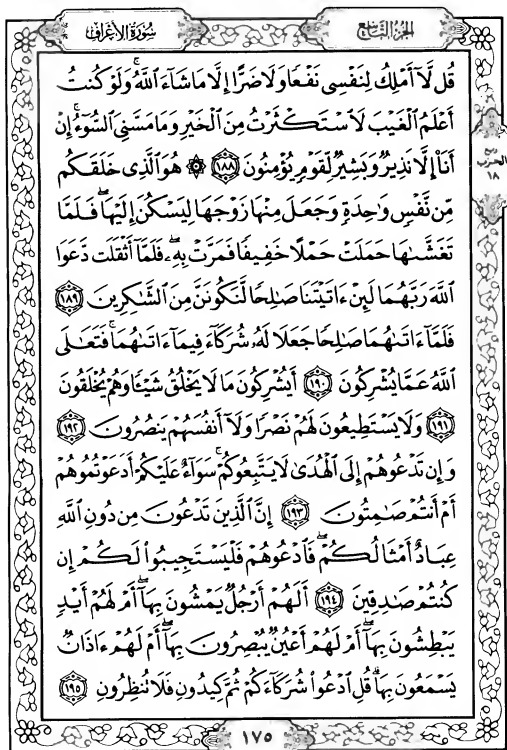 سورة الأعراف
الجزء التاسع
قُل لَّآ أَمْلِكُ لِنَفْسِى نَفْعًا وَلَا ضَرًّا إِلَّا مَا شَآءَ ٱللَّهُ ۚ وَلَوْ كُنتُ
أَعْلَمُ ٱلْغَيْبَ لَٱسْتَكْثَرْتُ مِنَ ٱلْخَيْرِ وَمَا مَسَّنِىَ ٱلسُّوٓءُ ۚ إِنْ
أَنَا۠ إِلَّا نَذِيرٌ وَبَشِيرٌ لِّقَوْمٍ يُؤْمِنُونَ ١٨٨ ۞ هُوَ ٱلَّذِى خَلَقَكُم
مِّن نَّفْسٍ وَٰحِدَةٍ وَجَعَلَ مِنْهَا زَوْجَهَا لِيَسْكُنَ إِلَيْهَا ۖ فَلَمَّا
تَغَشَّىٰهَا حَمَلَتْ حَمْلًا خَفِيفًا فَمَرَّتْ بِهِۦ ۖ فَلَمَّآ أَثْقَلَت دَّعَوَا
ٱللَّهَ رَبَّهُمَا لَئِنْ ءَاتَيْتَنَا صَٰلِحًا لَّنَكُونَنَّ مِنَ ٱلشَّٰكِرِينَ ١٨٩
فَلَمَّآ ءَاتَىٰهُمَا صَٰلِحًا جَعَلَا لَهُۥ شُرَكَآءَ فِيمَآ ءَاتَىٰهُمَا ۚ فَتَعَٰلَى
ٱللَّهُ عَمَّا يُشْرِكُونَ ١٩٠ أَيُشْرِكُونَ مَا لَا يَخْلُقُ شَيْـًٔا وَهُمْ يُخْلَقُونَ
١٩١ وَلَا يَسْتَطِيعُونَ لَهُمْ نَصْرًا وَلَآ أَنفُسَهُمْ يَنصُرُونَ ١٩٢
وَإِن تَدْعُوهُمْ إِلَى ٱلْهُدَىٰ لَا يَتَّبِعُوكُمْ ۚ سَوَآءٌ عَلَيْكُمْ أَدَعَوْتُمُوهُمْ
أَمْ أَنتُمْ صَٰمِتُونَ ١٩٣ إِنَّ ٱلَّذِينَ تَدْعُونَ مِن دُونِ ٱللَّهِ
عِبَادٌ أَمْثَالُكُمْ ۖ فَٱدْعُوهُمْ فَلْيَسْتَجِيبُوا۟ لَكُمْ إِن
كُنتُمْ صَٰدِقِينَ ١٩٤ أَلَهُمْ أَرْجُلٌ يَمْشُونَ بِهَآ ۖ أَمْ لَهُمْ أَيْدٍ
يَبْطِشُونَ بِهَآ ۖ أَمْ لَهُمْ أَعْيُنٌ يُبْصِرُونَ بِهَآ ۖ أَمْ لَهُمْ ءَاذَانٌ
يَسْمَعُونَ بِهَا ۗ قُلِ ٱدْعُوا۟ شُرَكَآءَكُمْ ثُمَّ كِيدُونِ فَلَا تُنظِرُونِ ١٩٥
ربع
الحزب
١٨
١٧٥